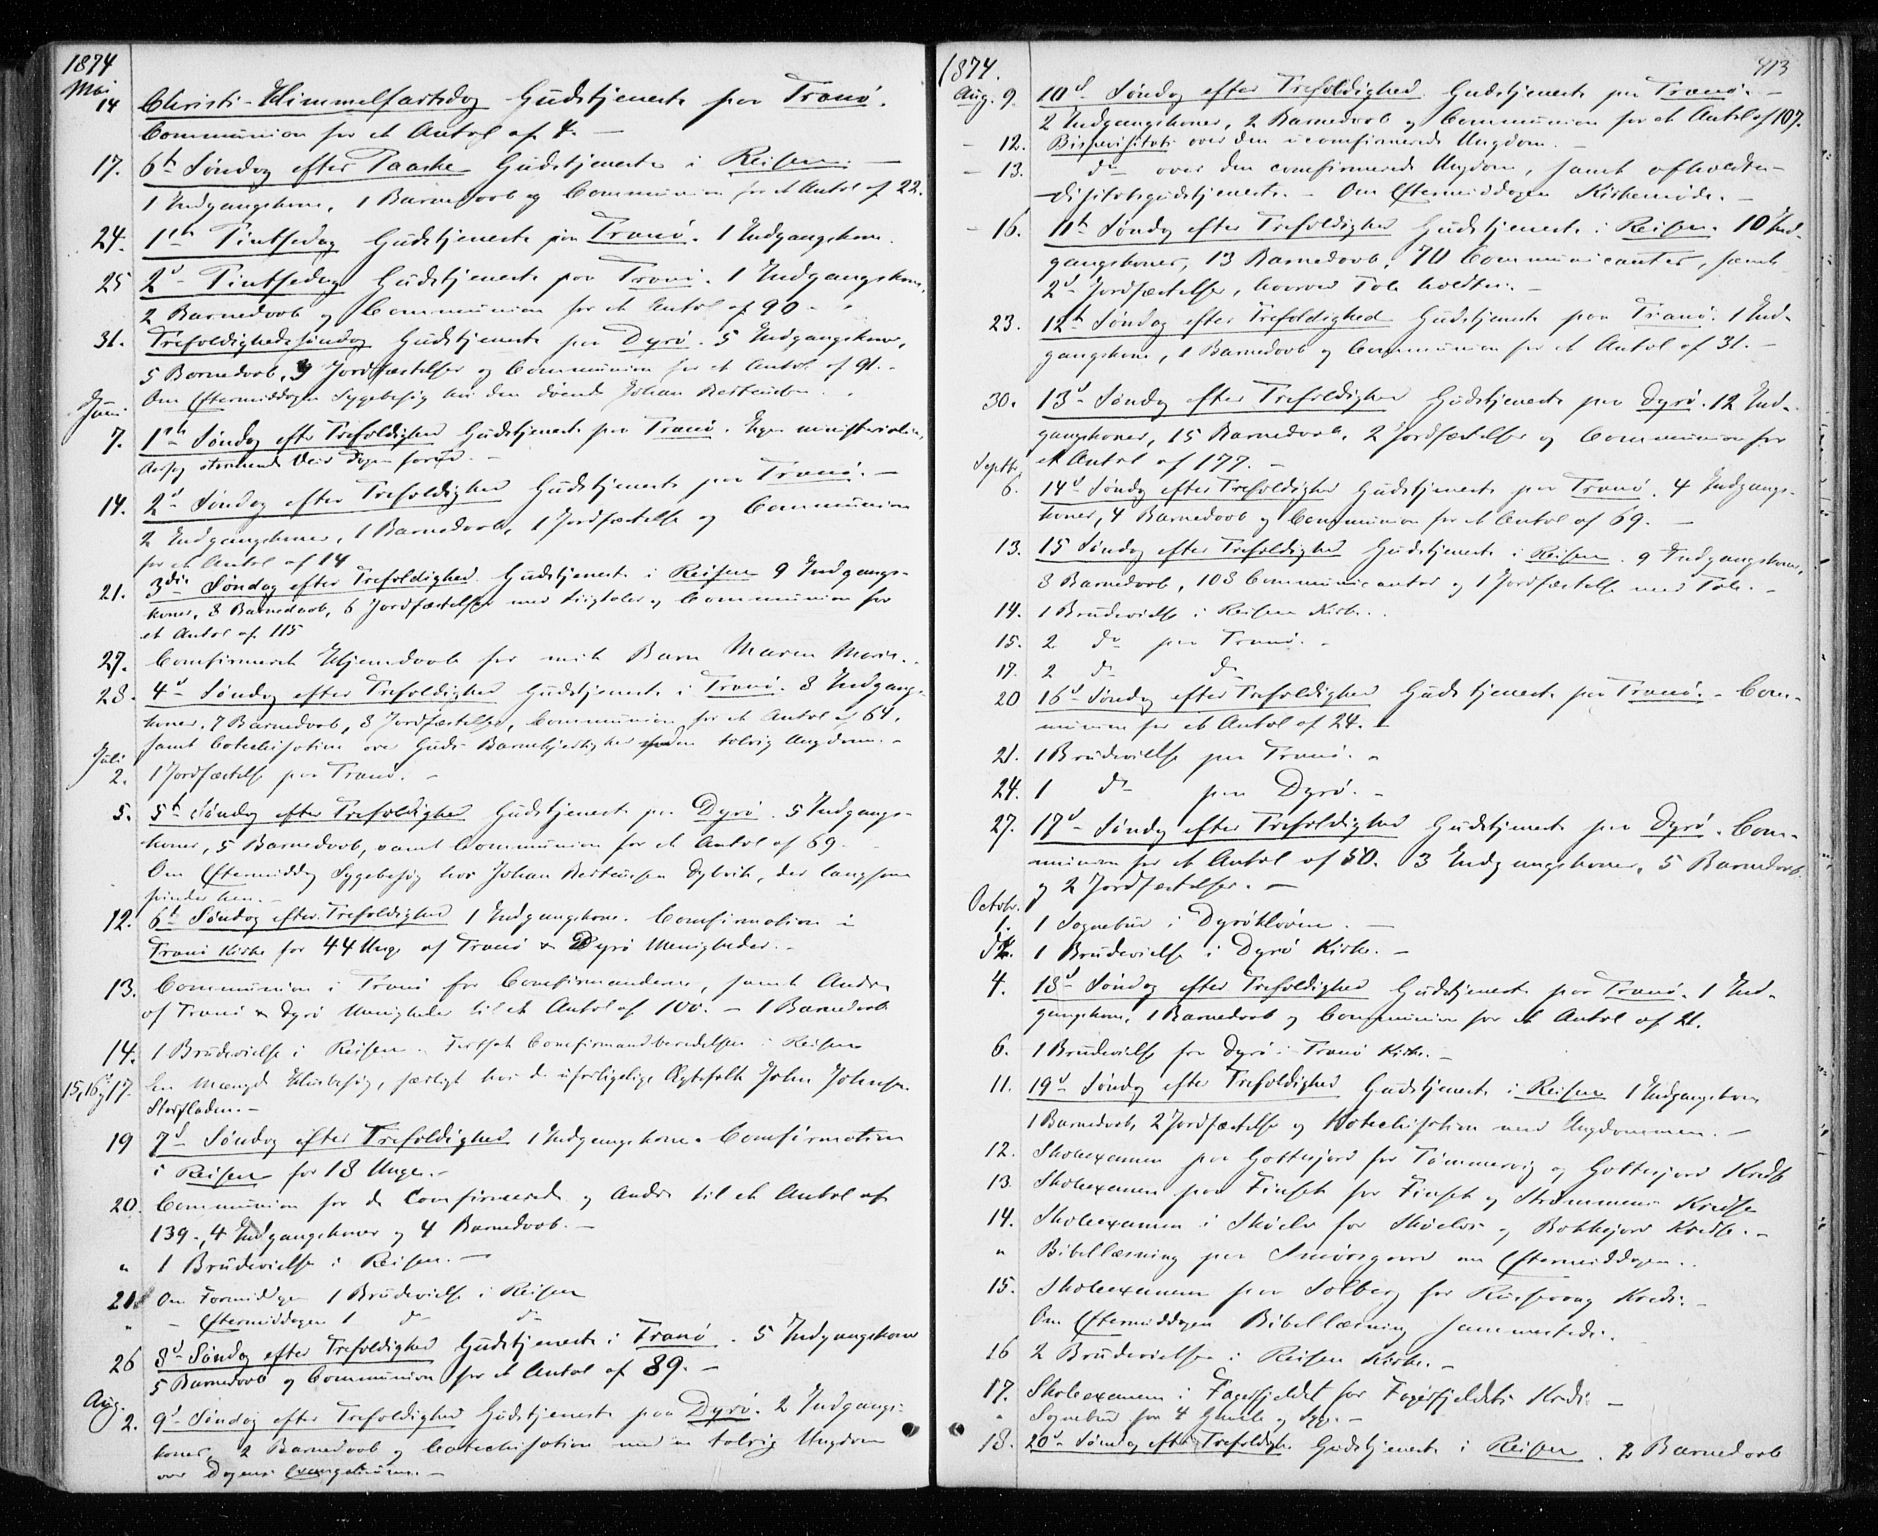 1874
Mai
14 Christi-Himmelfartsdag Gudstjeneste paa Tranø.
Communion for et Antal af 4. —
17. 6te Søndag efter Paaske Gudstjeneste i Reisen. —
1 Indgangskone, 1 Barnedaab og Communion for et Antal af 22.
24. 1ste Pintsedag Gudstjeneste paa Tranø. 1 Indgangskone.
25 2d Pintsedag Gudstjeneste paa Tranø. 1 Indgangskone,
2 Barnedaab og Communion for et Antal af 90 —
31. Trefoldighedssøndag Gudstjeneste paa Dyrø. 5 Indgangskoner,
5 Barnedaab, 3 Jordfæstelser og Communion for et Antal af 91. —
Om Eftermiddagen Sygebesøg hos den døende Johan
Juni
7. 1ste Søndag efter Trefoldighed Gudstjeneste paa Tranø. Ingen
stormende Veir Dagen forud. —
14. 2d Søndag efter Trefoldighed Gudstjeneste paa Tranø. —
2 Indgangskoner, 1 Barnedaab, 1 Jordfæstelse og Communion
for et Antal af 14
21. 3die Søndag efter Trefoldighed. Gudstjeneste i Reisen 9 Indgangs-
koner, 8 Barnedaab, 6 Jordfæstelser med Liigtaler og Communion for
et Antal af 115
27. Comfirmeret Hjemdaab for mit Barn Maren Marie. -
28. 4d Søndag efter Trefoldighed Gudstjeneste i Tranø. 8 Indgangs-
koner, 7 Barnedaab, 3 Jordfæstelser, Communion for et Antal af 64,
samt Catechisation over Guds den talrige Ungdom. -
Juli
2. 1 Jordfæstelse paa Tranø. -
5. 5te Søndag efter Trefoldighed Gudstjeneste paa Dyrø. 5 Indgangs-
koner, 5 Barnedaab, samt Communion for et Antal af 69.
Om Eftermiddag Sygebesøg hos Johan Dybvik, der langsomt
svinder hen. —
12. 6te Søndag efter Trefoldighed 1 Indgangskone. Comfirmation i
Tranø Kirke for 44 Unge af Tranø & Dyrø Menigheder. -
13. Communion i Tranø for Comfirmanderne, samt Andre
af Tranø & Dyrø Menigheder til et Antal af 100. — 1 Barnedaab
14. 1 Brudevielse i Reisen. Fortsat Comfirmandberedelsen i Reisen
15, 16 & 17. En Mængde Huusbesøg, særligt hos de uforligelige Ægtefolk John Johns.
Storsladen. -
19 7d Søndag efter Trefoldighed 1 Indgangskone. Comfirmation
i Reisen for 18 Unge. -
20. Communion for de Comfirmerede og Andre til et Antal af
139. 4 Indgangskoner og 4 Barnedaab. —
" 1 Brudevielse i Reisen. —
21. Om Formiddagen 1 Brudevielse i Reisen
" - Eftermiddagen 1 do do
26 8d Søndag efter Trefoldighed Gudstjeneste i Tranø. 5 Indgangskoner
5 Barnedaab og Communion for et Antal af 89. —
Aug.
2. 9d Søndag efter Trefoldighed Gudstjeneste paa Dyrø. 2 Indgangs-
koner, 2 Barnedaab og Catechisation med en talrig Ungdom
over Dagens Evangelium. -
1874. 413
Aug. 9. 10d Søndag efter Trefoldighed Gudstjeneste paa Tranø. —
2 Indgangskoner, 2 Barnedaab og Communion for et Antal af 107.
- 12. Bispevisitats over den uconfirmerede Ungdom. —
- 13. do over den comfirmerede Ungdom, samt afholdtes
Visitatsgudstjeneste. - Om Eftermiddagen Kirkemøde. -
- 16. 11te Søndag efter Trefoldighed Gudstjeneste i Reisen. 10 Ind-
gangskoner, 13 Barnedaab, 70 Communicanter, samt
2d Jordfæstelser, hvorved Tale holdtes. -
23. 12te Søndag efter Trefoldighed Gudstjeneste paa Tranø. 1 Ind-
gangskone, 1 Barnedaab og Communion for et Antal af 31. —
30. 13d Søndag efter Trefoldighed Gudstjeneste paa Dyrø. 12 Ind-
gangskoner, 15 Barnedaab, 2 Jordfæstelser og Communion for
et Antal af 177. —
Septbr.
6. 14d Søndag efter Trefoldighed Gudstjeneste paa Tranø. 4 Indgangs-
koner, 4 Barnedaab og Communion for et Antal af 69. —
13. 15 Søndag efter Trefoldighed Gudstjeneste i Reisen. 9 Indgangskoner,
8 Barnedaab, 103 Communicanter og 1 Jordfæstelse med Tale. -
14. 1 Brudevielse i Reisen Kirke.
15. 2 do paa Tranø. -
17. 2 do do
20 16d Søndag efter Trefoldighed Gudstjeneste paa Tranø. - Com-
munion for et Antal af 24. —
21. 1 Brudevielse paa Tranø. -
24. 1 do paa Dyrø. -
27. 17d Søndag efter Trefoldighed Gudstjeneste paa Dyrø. Com-
munion for et Antal af 50. 3 Indgangskoner, 5 Barnedaab
og 2 Jordfæstelser. —
Octobr.
1. 1 Sognebud i Dyrøkloven. —
1 Brudevielse i Dyrø Kirke. -
4. 18d Søndag efter Trefoldighed Gudstjeneste paa Tranø. 1 Ind-
gangskone, 1 Barnedaab og Communion for et Antal af 21.
6. 1 Brudevielse fra Dyrø i Tranø Kirke. -
11. 19d Søndag efter Trefoldighed Gudstjeneste i Reisen 1 Indgangskone
1 Barnedaab, 2 Jordfæstelse og Katechisation med Ungdommen. -
12. Skoleexamen paa Gottesjord for Tømmervig og Gottesjord Kreds
13. Skoleexamen paa Finset for Finset og Strømmens Kredse
14. Skoleexamen i Skøelv for Skøelvs og Bakkejord Kredse. -
" Bibellæsning paa Smørsgaard om Eftermiddagen. .
15. Skoleexamen paa Solberg for Russevaag Kreds. -
Om Eftermiddagen Bibellæsning sammesteds.
16 2 Brudevielser i Reisen Kirke. —
17. Skoleexamen i Fagerfjeldet for Fagerfjeldets Kreds. —
" Sognebud for 4 Gamle og Syge. -
18. 20d Søndag efter Trefoldighed Gudstjeneste i Reisen. 2 Barnedaab